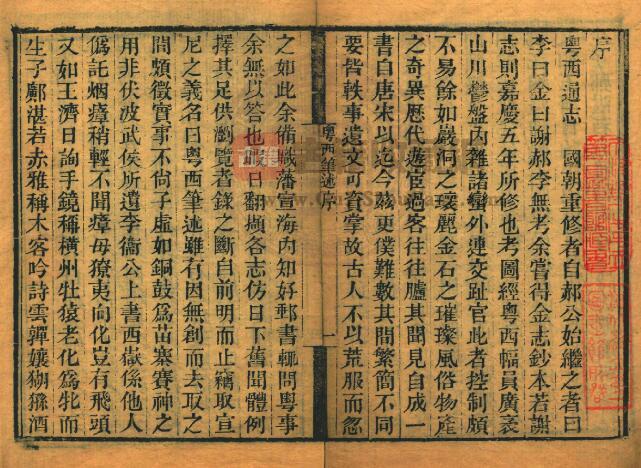 序
粵西通志　國朝重修者自郝公始繼之者曰
李曰金曰謝郝李無考余嘗得金志鈔本若謝
志則嘉慶五年所修也考圖經粵西幅員廣袤
山川鬱盤內雜諸蠻外連交趾官此者控制頗
不易餘如巖洞之瓌麗金石之璀璨風俗物產
之奇異歷代遊宦過客往往臚其聞見自成一
書自唐宋以迄今茲更僕難數其間繁簡不同
要皆軼事遺文可資掌故古人不以荒服而忽
粵西筆述序
一
之如此余備職藩宣海内知好郵書輒問粵事
余無以答也暇日翻擷各志仿日下舊聞體例
擇其足供瀏覽者錄之斷自前明而止竊取宣
尼之義名曰粵西筆述雖有因無創而去取之
間頗徵實事不尚子虛如銅鼓為苗寨賽神之
用非伏波武侯所遺李衞公上書西嶽係他人
僞託烟瘴稍輕不聞瘴母獠夷向化豈有飛頭
又如王濟日詢手鏡稱橫州牡猿老化為牝而
生子鄺湛若赤雅稱木客吟詩雲嚲孃猢猻酒